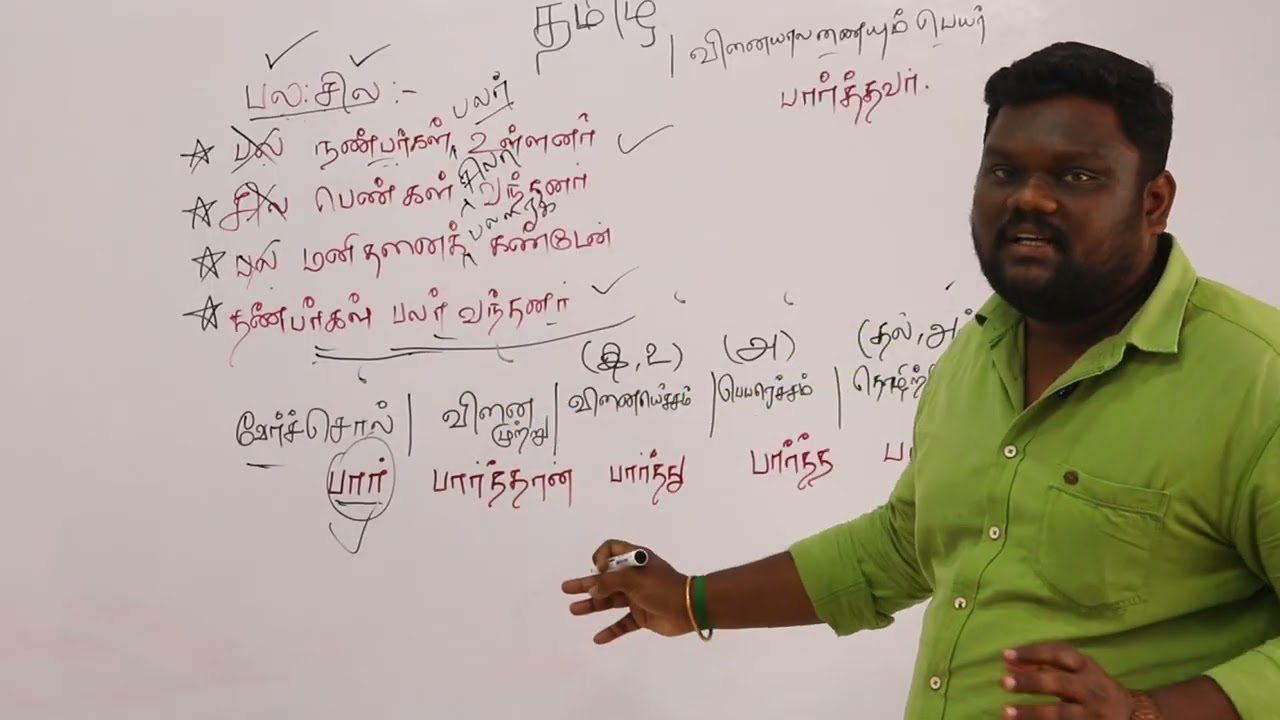 தமிழ்
வினையாலணையும் பெயர்
பார்த்தவர்.
பல : சில :-
பலர்
பல நண்பர்கள் உள்ளனர்
சிலர்
சில பெண்கள் வந்தனர்
பலரைக்
பல மனிதனைக் கண்டேன்
நண்பர்கள் பலர் வந்தனர்
(இ, உ) (அ) (தல், அ
வேர்ச்சொல் | வினை முற்று | வினையெச்சம் | பெயரெச்சம் | தொழிற்
பார் பார்த்தான் பார்த்து பார்த்த பா